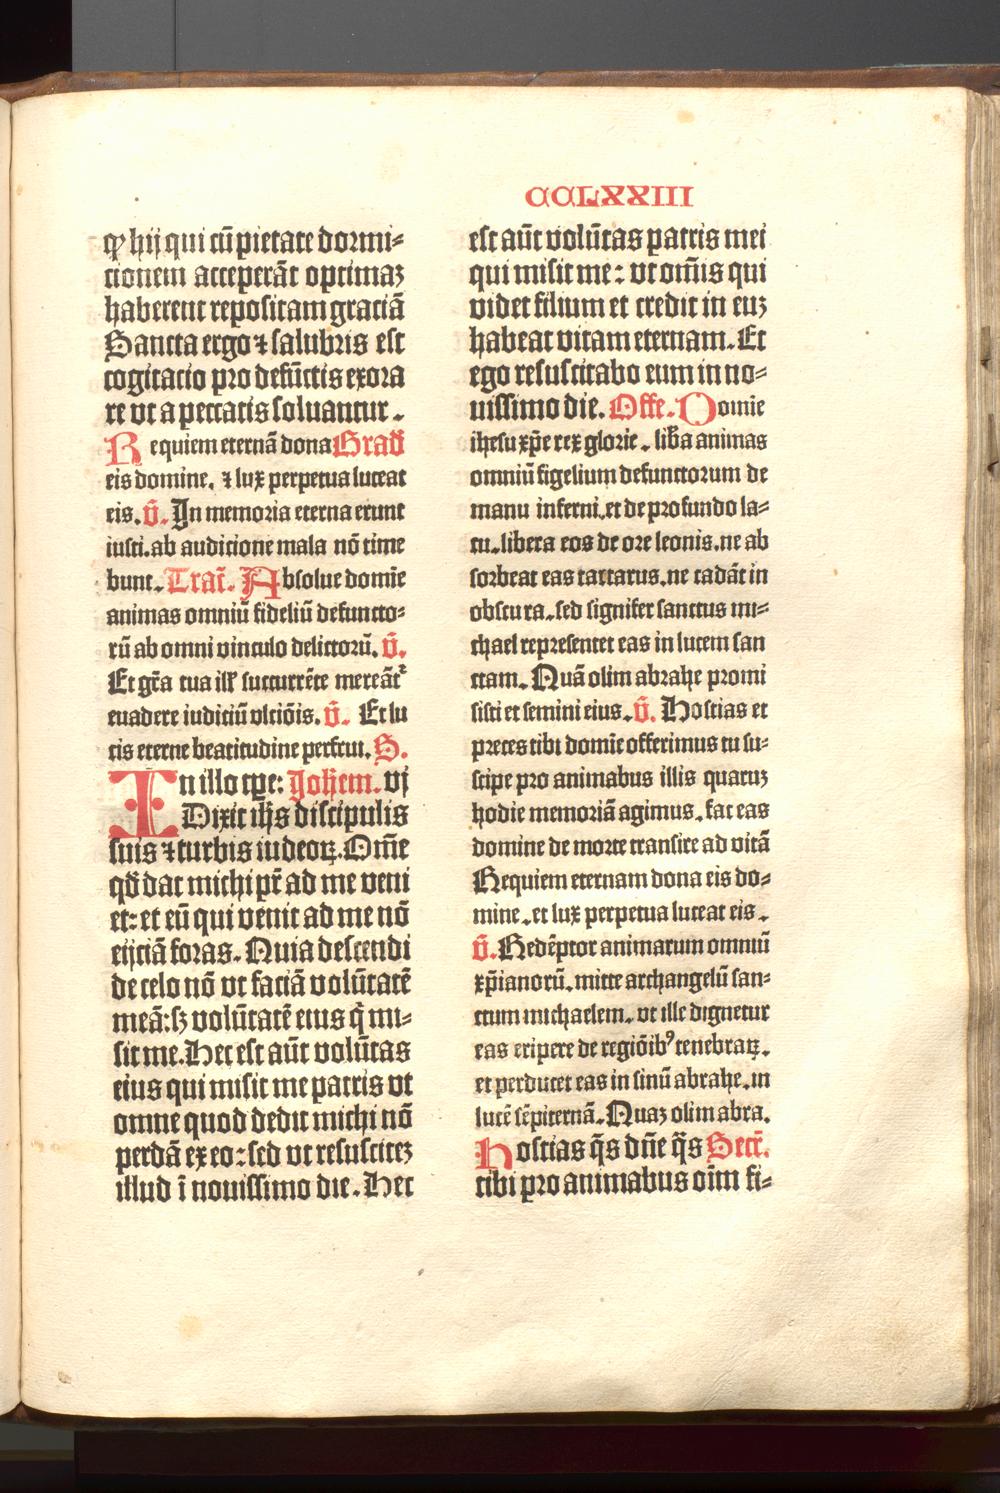 CCLXXIII
ꝙ hij qui cū pietate dormi-
tionem acceperāt optimaꝫ
haberent repositam gratiā
Sancta ergo ⁊ salubris est
cogitacio pro defūctis exora
re vt a peccatis soluantur.
Requiem eternā dona Grad̄
eis domine. ⁊ lux perpetua luceat
eis. v̄. In memoria eterna erunt
iusti. ab auditione mala nō time
bunt. Tract̄. Absolue domīe
animas omniū fideliū defuncto-
rū ab omni vinculo delictorū. v̄.
Et gr̄a tua ill̄ succurrēte mereāt᷑
euadere iuditiū vltiōis. v̄. Et lu
cis eterne beatitudine perfrui. S.
In illo tp̄e: Joh̄em. vj
Dixit ih̄s discipulis
suis ⁊ turbis iudeoꝝ. Om̄e
qd̄ dat michi pr̄ ad me veni
et: et eū qui venit ad me nō
eijciā foras. Quia descendi
de celo nō vt faciā volūtatē
meā: sꝫ volūtatē eius q̄ mi-
sit me. Hec est aūt volūtas
eius qui misit me patris vt
omne quod dedit michi nō
perdā ex eo: sed vt resusciteꝫ
illud ī nouissimo die. Hec
est aūt volūtas patris mei
qui misit me: vt om̄is qui
videt filium et credit in euꝫ
habeat vitam eternam. Et
ego resuscitabo eum in no-
uissimo die. Offe. Domīe
ihesu xp̄e rex glorie. lib̄a animas
omniū figelium defunctorum de
manu inferni. et de profundo la-
cu. libera eos de ore leonis. ne ab
sorbeat eas tartarus. ne cadāt in
obscura. sed signifer sanctus mi-
chael representet eas in lucem san
ctam. Quā olim abrahe promi
sisti et semini eius. v̄. Hostias et
preces tibi domīe offerimus tu su-
scipe pro animabus illis quaruꝫ
hodie memoriā agimus. fac eas
domine de morte transire ad vitā
Requiem eternam dona eis do-
mine. et lux perpetua luceat eis.
v̄. Redēptor animarum omniū
xp̄ianorū. mitte archangelū san-
ctum michaelem. vt ille dignetur
eas eripere de regiōibꝰ tenebraꝝ.
et perducet eas in sinū abrahe. in
lucē sēpiternā. Quaꝫ olim abra.
Hostias q̄s dn̄e q̄s Secr̄.
tibi pro animabus oīm fi-